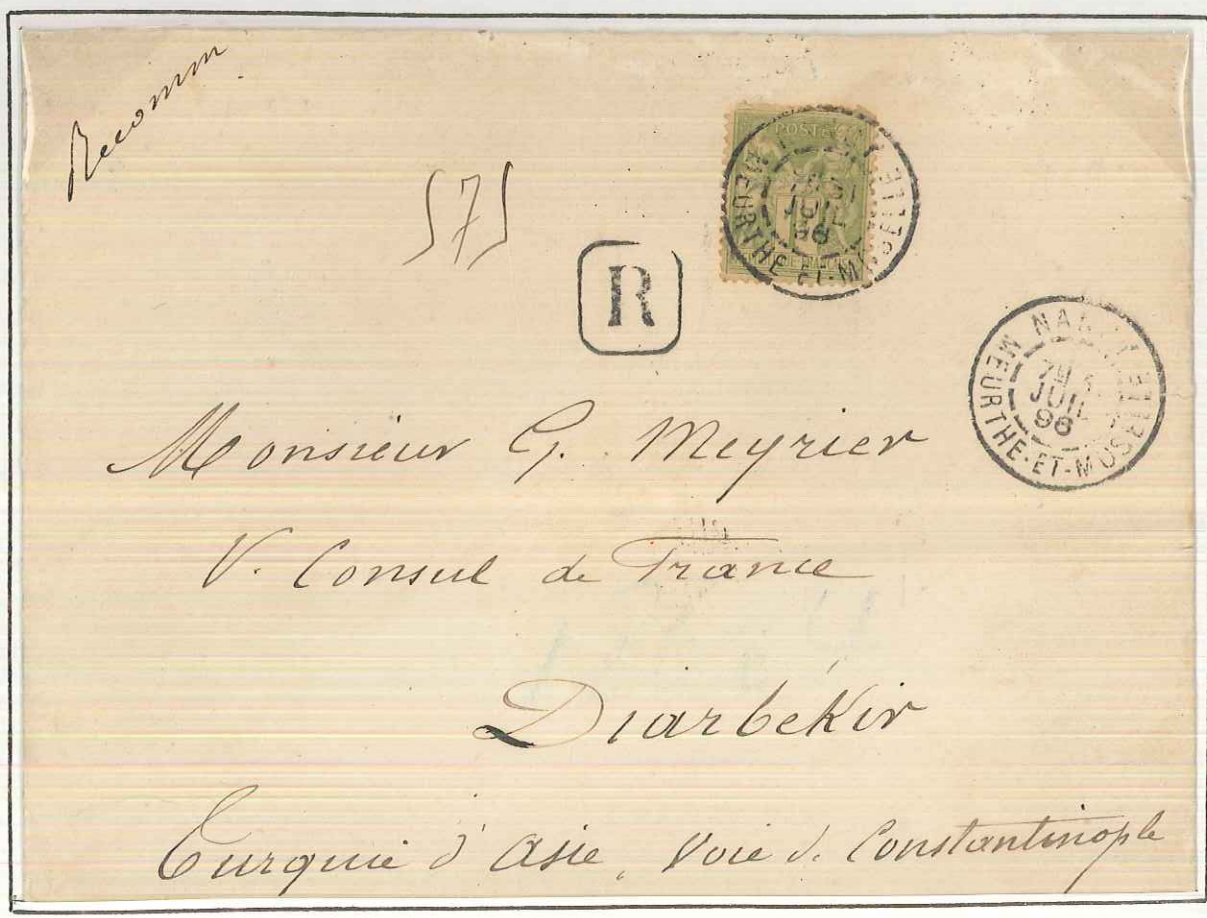 Recomm
575
R
POSTE
MEURTHE-ET-MOSELLE
31
JUIL
96
NANCY
7E
JUIL
96
MEURTHE-ET-MOSELLE
Monsieur G. Meyrier
V. Consul de France
Diarbékir
Turquie d'Asie, Voie d. Constantinople